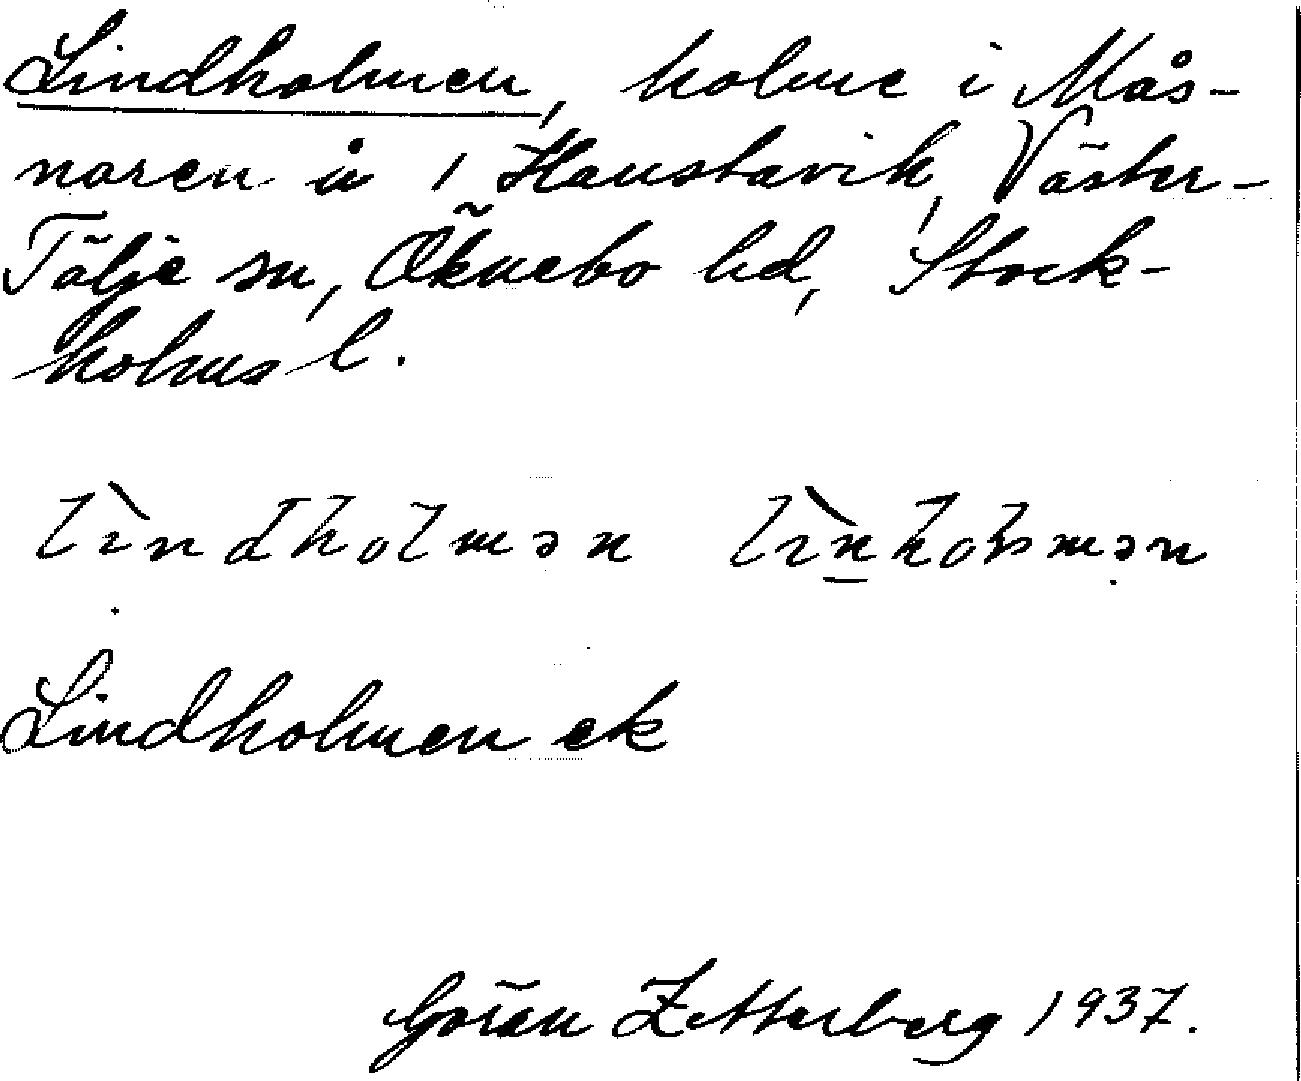 Lindholmen, holme i Mås-
naren å 1 Haustavik, Väster-
Tälje sn, Öknebo hd, Stock-
holms l.
lìndholmən lìnholmən
Lindholmen ek
Göran Zetterberg 1937.